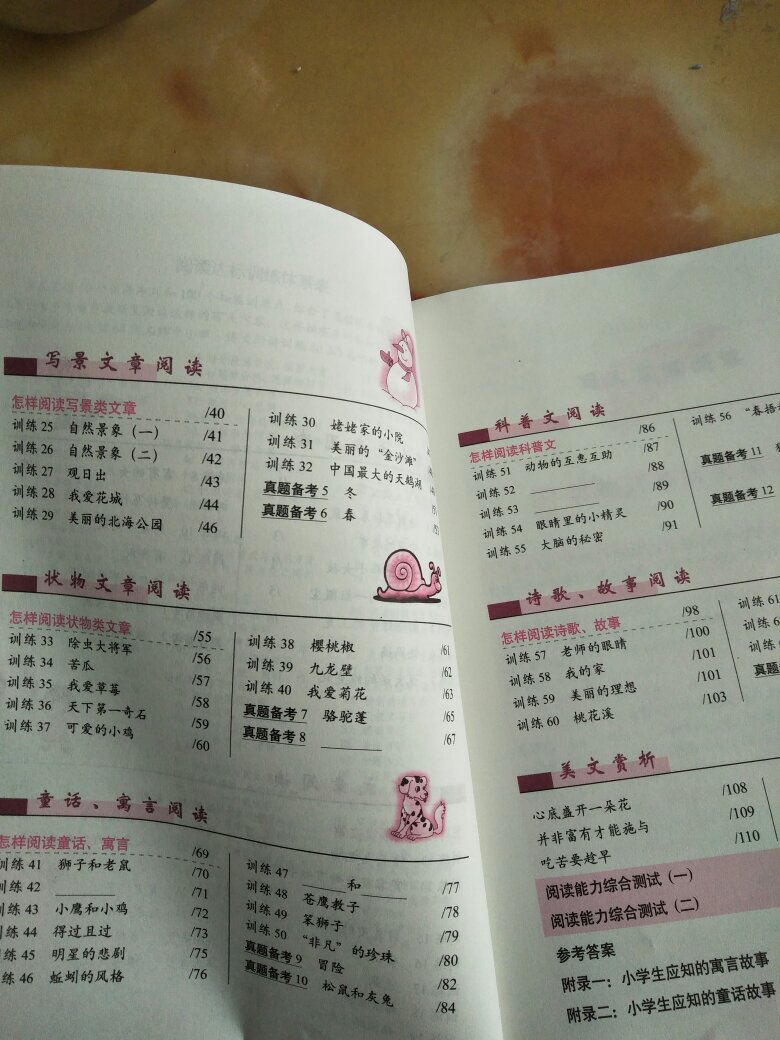 写景文章阅读
怎样阅读写景类文章 /40
训练25 自然景象（一） /41
训练26 自然景象（二） /42
训练27 观日出 /43
训练28 我爱花城 /44
训练29 美丽的北海公园 /46
训练30 姥姥家的小院
训练31 美丽的“金沙滩”
训练32 中国最大的天鹅湖
真题备考5 冬
真题备考6 春
状物文章阅读
怎样阅读状物类文章 /55
训练33 除虫大将军 /56
训练34 苦瓜 /57
训练35 我爱草莓 /58
训练36 天下第一奇石 /59
训练37 可爱的小鸡 /60
训练38 樱桃椒 /61
训练39 九龙壁 /62
训练40 我爱菊花 /63
真题备考7 骆驼蓬 /65
真题备考8 ______ /67
童话、寓言阅读
怎样阅读童话、寓言 /69
训练41 狮子和老鼠 /70
训练42 ______ /71
训练43 小鹰和小鸡 /72
训练44 得过且过 /73
训练45 明星的悲剧 /75
训练46 蚯蚓的风格 /76
训练47 ______和______ /77
训练48 苍鹰教子 /78
训练49 笨狮子 /79
训练50 “非凡”的珍珠 /80
真题备考9 冒险 /82
真题备考10 松鼠和灰兔 /84
科普文阅读
怎样阅读科普文 /86
训练51 动物的互惠互助 /87
训练52 ______ /88
训练53 ______ /89
训练54 眼睛里的小精灵 /90
训练55 大脑的秘密 /91
训练56 “春捂
真题备考11
真题备考12
诗歌、故事阅读
怎样阅读诗歌、故事 /98
训练57 老师的眼睛 /100
训练58 我的家 /101
训练59 美丽的理想 /101
训练60 桃花溪 /103
训练61
训练
训练
真题
美文赏析
心底盛开一朵花 /108
并非富有才能施与 /109
吃苦要趁早 /110
阅读能力综合测试（一）
阅读能力综合测试（二）
参考答案
附录一：小学生应知的寓言故事
附录二：小学生应知的童话故事